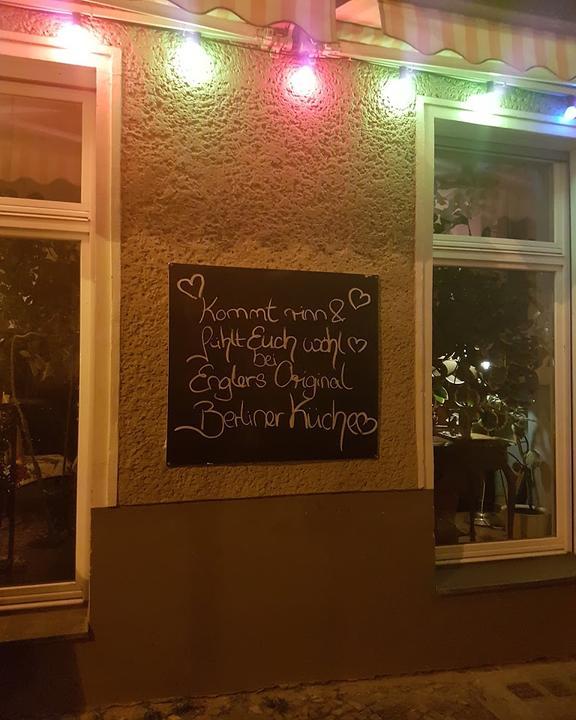 Kommt rinn &
fühlt Euch wohl
bei
Englers Original
Berliner Küche